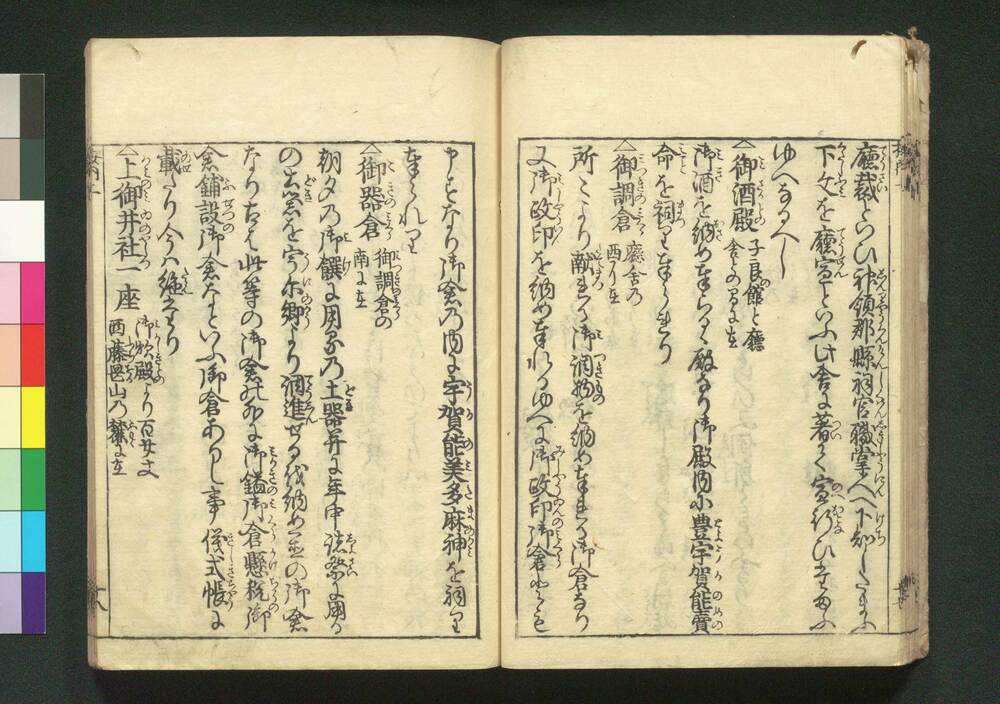 廳裁といひ神領郡縣祠官職掌人へ下知したまふ
下文を廳宣といふ此舎に著て宣行ひ玉ふ
ゆへなるへし
△御酒殿 子良館と廳
舎との間に在
御酒を納め奉らるゝ殿なり御殿内に豊宇賀能賣
命を祠り奉られり
△御調倉 廳舎の
西に在
所々より献れる御調物を納め奉れる御倉なり
又御政印を納め奉れるゆへに御政印御倉とも
申すなり御倉の内に宇賀能美多麻神を祠り
奉られり
△御器倉 御調倉の
南に在
朝夕の御饌に用る乃土器并に年中諸祭に用る
の土器を宇尓郷より調進せるを納め置の御倉
なり古は此等の御倉の外に御鎰御倉懸税御
倉鋪設御倉なといふ御倉ありし事儀式帳に
載たり今は絶えたり
△上御井社一座 御炊殿より百廿丈
西藤岡山の麓に在